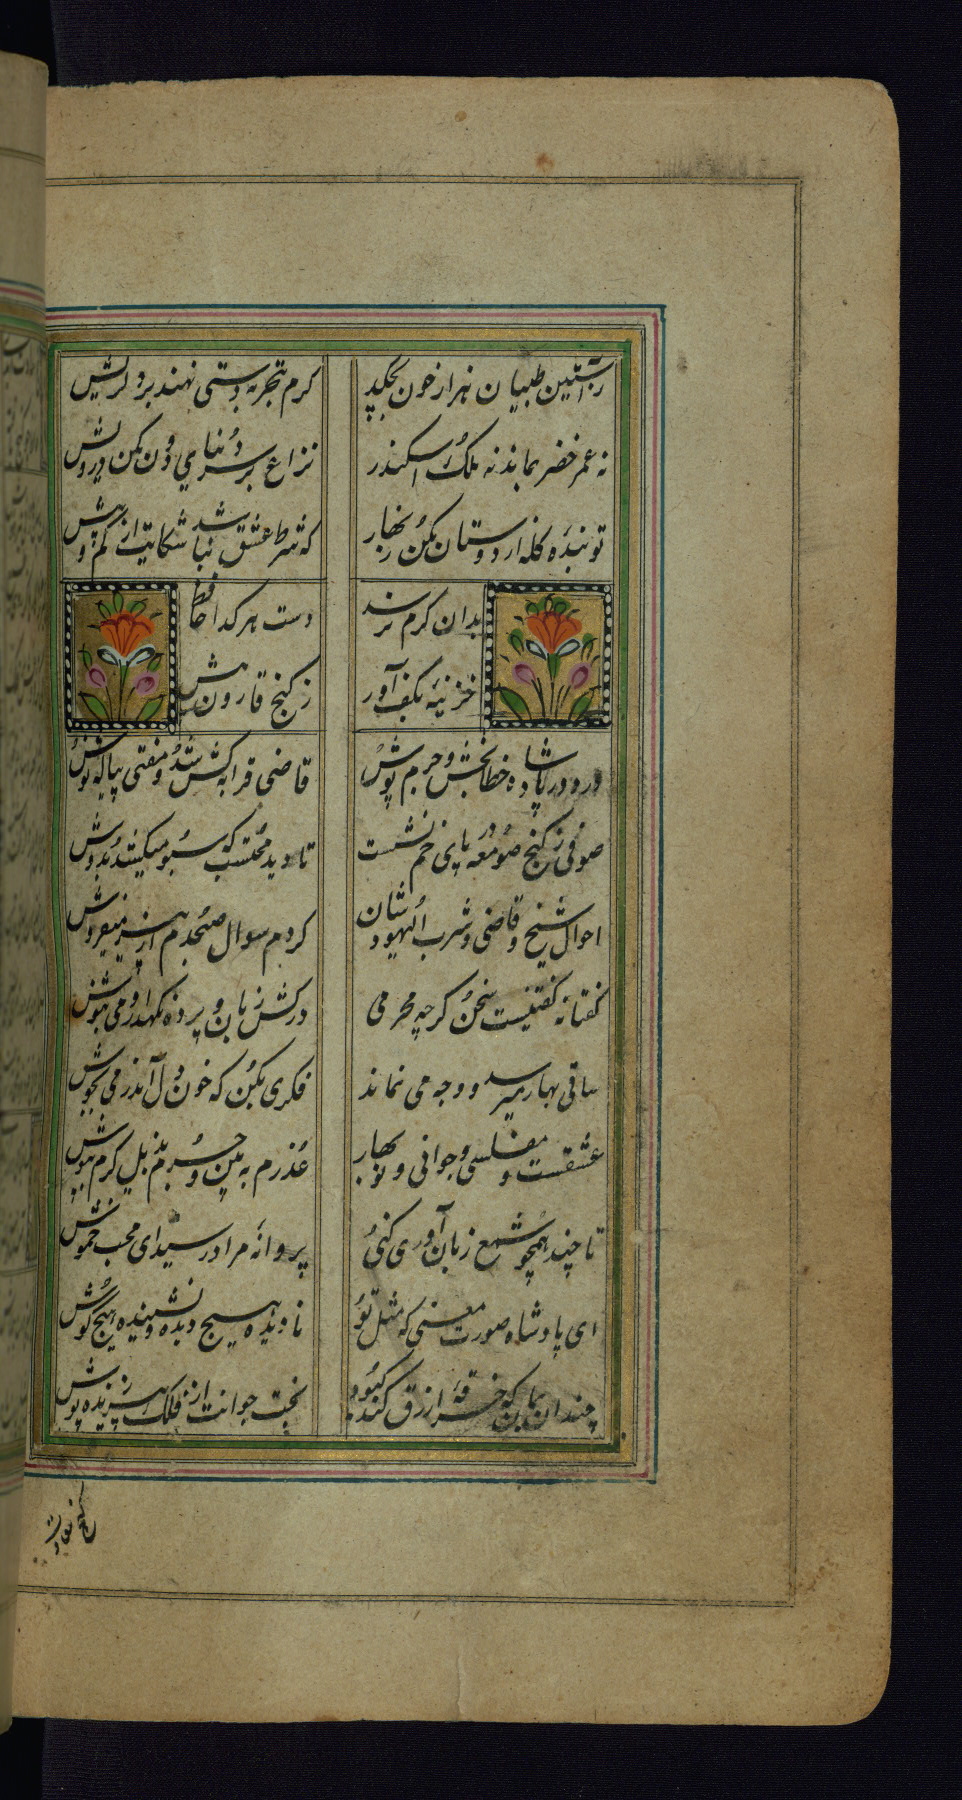 ز آستین طبیبان هزار خون بچکد
گرم تجربه دستی نهند بر دل ریش
نه عمر خضر بماند نه ملک اسکندر
نزاع بر سر دنیای دون مکن درویش
تو بنده گله از دوستان مکن زنهار
که شرط عشق نباشد شکایت از کم و بیش
بدان کرم نرسد
دست هر گدا حافظ
خزینه بکف آور
ز گنج قارون بیش
در دور پادشاه خطابخش و جرم پوش
قاضی قرابه کش شد و مفتی پیاله نوش
صوفی ز کنج صومعه در پای خم نشست
تا دید محتسب که سبو میکشد بدوش
احوال شیخ و قاضی و شرب الیهودشان
کردم سوال صبحدم از پیر میفروش
گفتا نه گفتنیست سخن گرچه محرمی
درکش زبان و پرده نگهدار و می بنوش
ساقی بهار میرسد و وجه می نماند
فکری بکن که خون دل آمد ز می بجوش
عشقست و مفلسی و جوانی و نوبهار
عذرم به بین و جرم بذیل کرم بپوش
تا چند همچو شمع زبان آوری کنی
پروانه مراد رسید ای محب خموش
ای پادشاه صورت معنی که مثل تو
نادیده هیچ دیده و نشنیده هیچ گوش
چندان بمان که خرقه ازرق کند کبود
بخت جوانت از فلک پیر ژنده پوش